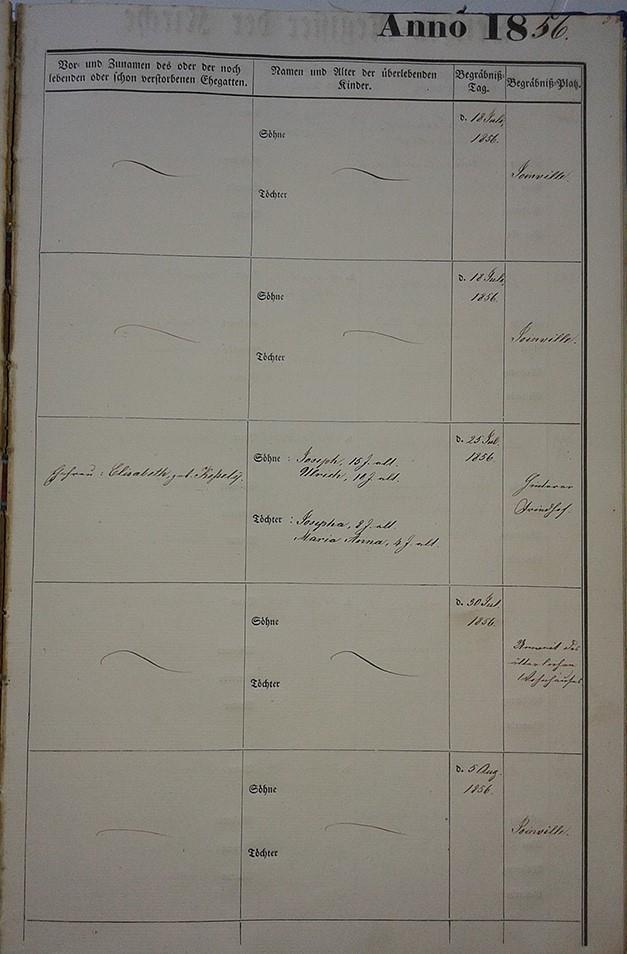 Anno 1856.
Vor- und Zunamen des oder der noch
lebenden oder schon verstorbenen Ehegatten.
Namen und Alter der überlebenden
Kinder.
Begräbniß-
Tag.
Begräbniß-Platz.
Söhne
Töchter
d. 18 Juli,
1856.
Joinville.
Söhne
Töchter
d. 18 Juli,
1856.
Joinville.
Ehefrau: Elisabeth, geb.
Söhne : Joseph, 15 J. alt.
Ulrich, 10 J. alt.
Töchter : Josepha, 8 J. alt.
Maria Anna, 4 J. alt.
d. 25 Jul.
1856
Hinterer
Friedhof.
Söhne
Töchter
d. 30 Jul.
1856.
Unweit des
Wohnhauses
Söhne
Töchter
d. 5 Aug.
1856.
Joinville.